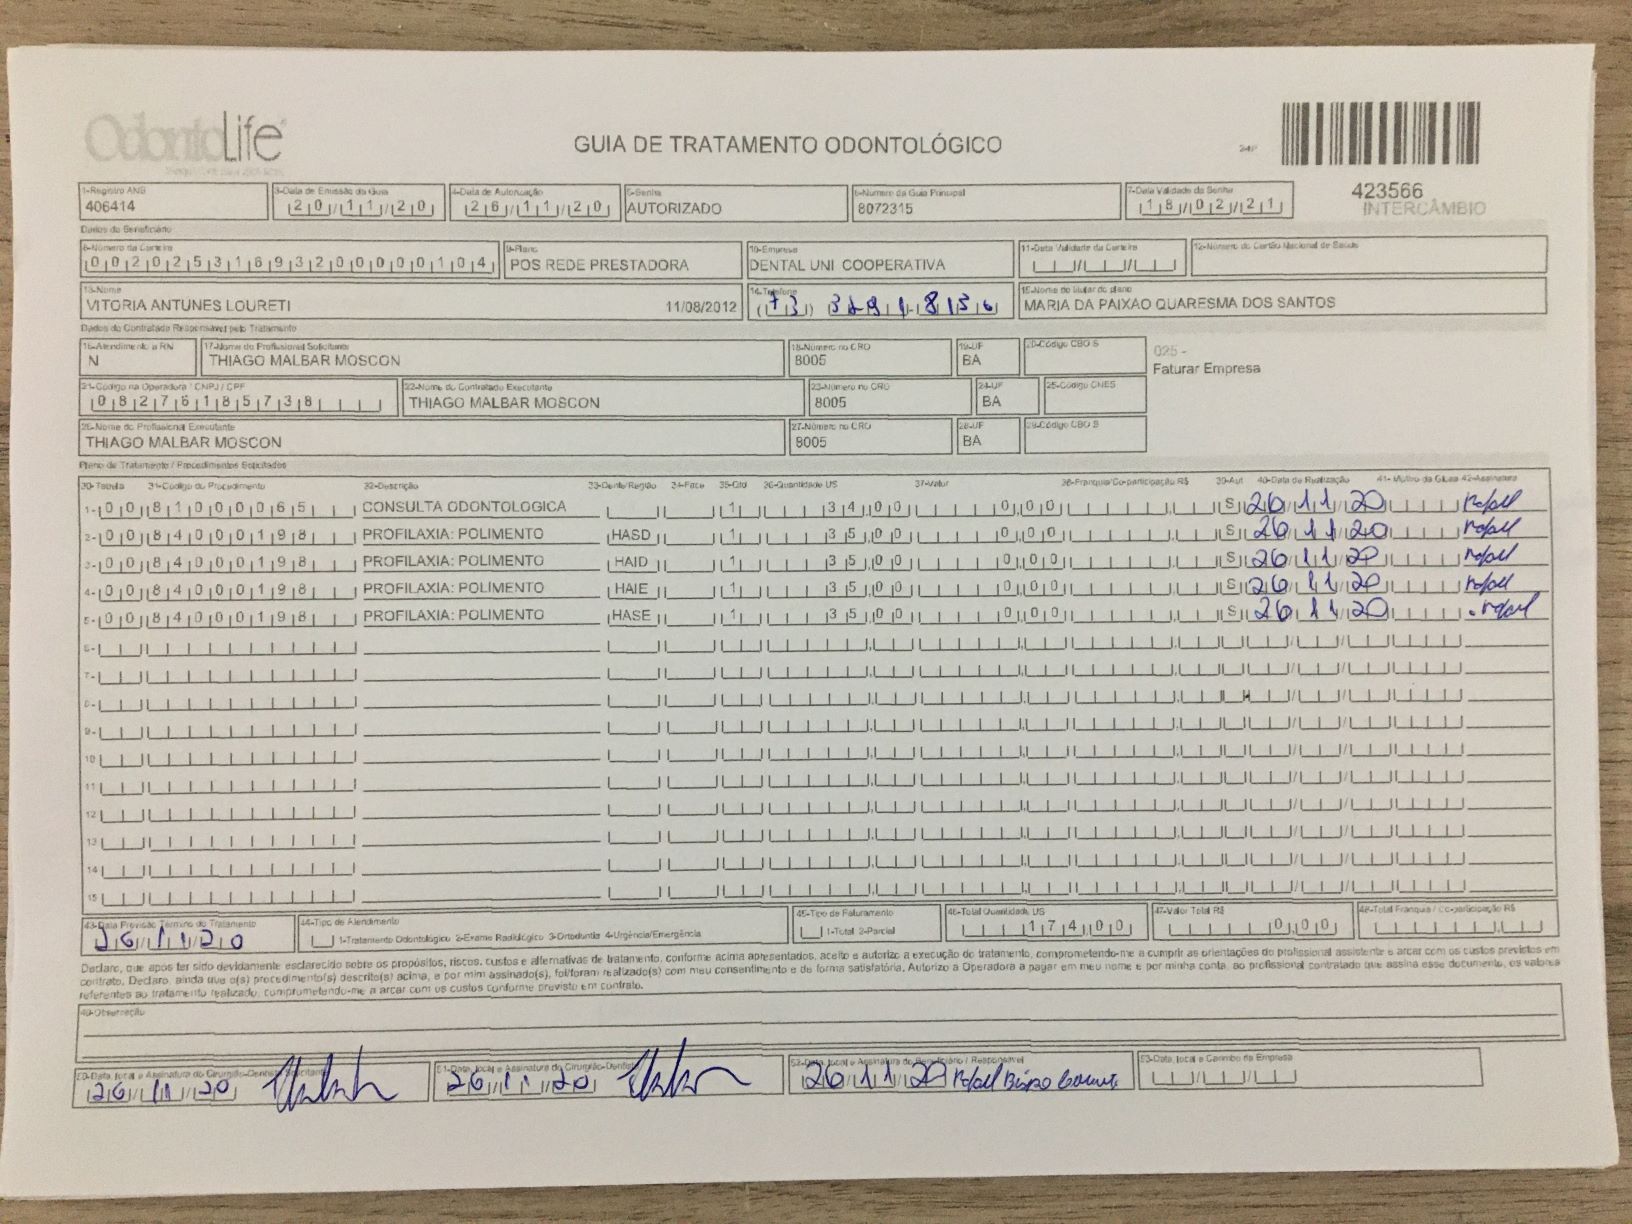 OdontoLife
GUIA DE TRATAMENTO ODONTOLÓGICO
423566
INTERCÂMBIO
1-Registro ANS 3-Data de Emissão da Guia 4-Data de Autorização 5-Senha 6-Número da Guia Principal 7-Data Validade da Senha
406414 20/11/20 26/11/20 AUTORIZADO 8072315 18/02/21
Dados do Beneficiário
8-Número da Carteira 9-Plano 10-Empresa 11-Data Validade da Carteira 12-Número do Cartão Nacional de Saúde
00202531693200000104 POS REDE PRESTADORA DENTAL UNI COOPERATIVA
13-Nome 14-Telefone 15-Nome do titular do plano
VITORIA ANTUNES LOURETI 11/08/2012 (73) MARIA DA PAIXAO QUARESMA DOS SANTOS
Dados do Contratado Responsável pelo Tratamento
16-Atendimento a RN 17-Nome do Profissional Solicitante 18-Número no CRO 19-UF 20-Código CBO S
N THIAGO MALBAR MOSCON 8005 BA
025 -
Faturar Empresa
21-Código na Operadora / CNPJ / CPF 22-Nome do Contratado Executante 23-Número no CRO 24-UF 25-Código CNES
08276185738 THIAGO MALBAR MOSCON 8005 BA
26-Nome do Profissional Executante 27-Número no CRO 28-UF 29-Código CBO S
THIAGO MALBAR MOSCON 8005 BA
Plano de Tratamento / Procedimentos Solicitados
30-Tabela 31-Código do Procedimento 32-Descrição 33-Dente/Região 34-Face 35-Qtd 36-Quantidade US 37-Valor 38-Franquia/Co-participação R$ 39-Aut 40-Data de Realização 41-Motivo da Glosa 42-Assinatura
1- 00 81000065 CONSULTA ODONTOLOGICA 1 34,00 0,00 S 26/11/20 Rafael
2- 00 84000198 PROFILAXIA: POLIMENTO HASD 1 35,00 0,00 S 26/11/20 Rafael
3- 00 84000198 PROFILAXIA: POLIMENTO HAID 1 35,00 0,00 S 26/11/20 Rafael
4- 00 84000198 PROFILAXIA: POLIMENTO HAIE 1 35,00 0,00 S 26/11/20 Rafael
5- 00 84000198 PROFILAXIA: POLIMENTO HASE 1 35,00 0,00 S 26/11/20 Rafael
6-
7-
8-
9-
10
11
12
13
14
15
43-Data Previsão Término do Tratamento 44-Tipo de Atendimento 45-Tipo de Faturamento 46-Total Quantidade US 47-Valor Total R$ 48-Total Franquia / Co-participação R$
26/11/20 1-Tratamento Odontológico 2-Exame Radiológico 3-Ortodontia 4-Urgência/Emergência 1-Total 2-Parcial 174,00 0,00
Declaro, que após ter sido devidamente esclarecido sobre os propósitos, riscos, custos e alternativas de tratamento, conforme acima apresentados, aceito e autorizo a execução do tratamento, comprometendo-me a cumprir as orientações do profissional assistente e arcar com os custos previstos em
contrato. Declaro, ainda que o(s) procedimento(s) descrito(s) acima, e por mim assinado(s), foi/foram realizado(s) com meu consentimento e de forma satisfatória. Autorizo a Operadora a pagar em meu nome e por minha conta, ao profissional contratado que assina esse documento, os valores
referentes ao tratamento realizado, comprometendo-me a arcar com os custos conforme previsto em contrato.
49-Observação
50-Data, local e Assinatura do Cirurgião-Dentista Solicitante 51-Data, local e Assinatura do Cirurgião-Dentista 52-Data, local e Assinatura do Beneficiário / Responsável 53-Data, local e Carimbo da Empresa
26/11/20 26/11/20 26/11/20 Rafael